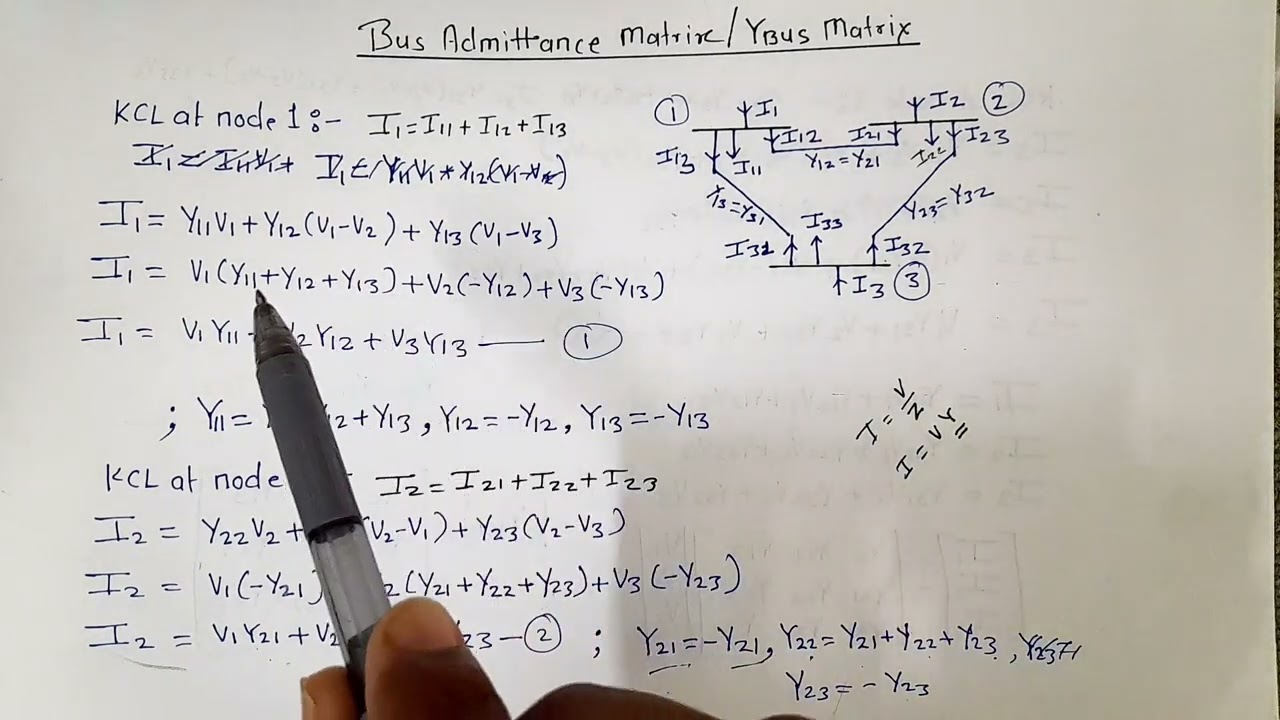 Bus Admittance Matrix/YBus Matrix
KCL at node 1:- I1 = I11 + I12 + I13
I1 = Y11V1 + Y12(V1-V2)
I1 = Y11V1 + Y12(V1-V2) + Y13(V1-V3)
I1 = V1(Y11+Y12+Y13) + V2(-Y12) + V3(-Y13)
I1 = V1Y11 Y12 + V3Y13 — 1
; Y11 = Y12 + Y13, Y12 = -Y12, Y13 = -Y13
KCL at node I2 = I21 + I22 + I23
I2 = Y22V2 + (V2-V1) + Y23(V2-V3)
I2 = V1(-Y21) (Y21+Y22+Y23) + V3(-Y23)
I2 = V1Y21 + V2 23 — 2 ; Y21 = -Y21, Y22 = Y21+Y22+Y23,
Y23 = -Y23
1 I1 I2 2
I13 I11 I12 I21 I22 I23
Y12=Y21
Y13=Y31 I33 Y23=Y32
I31 I32
I3 3
I = V/Z
I = VY